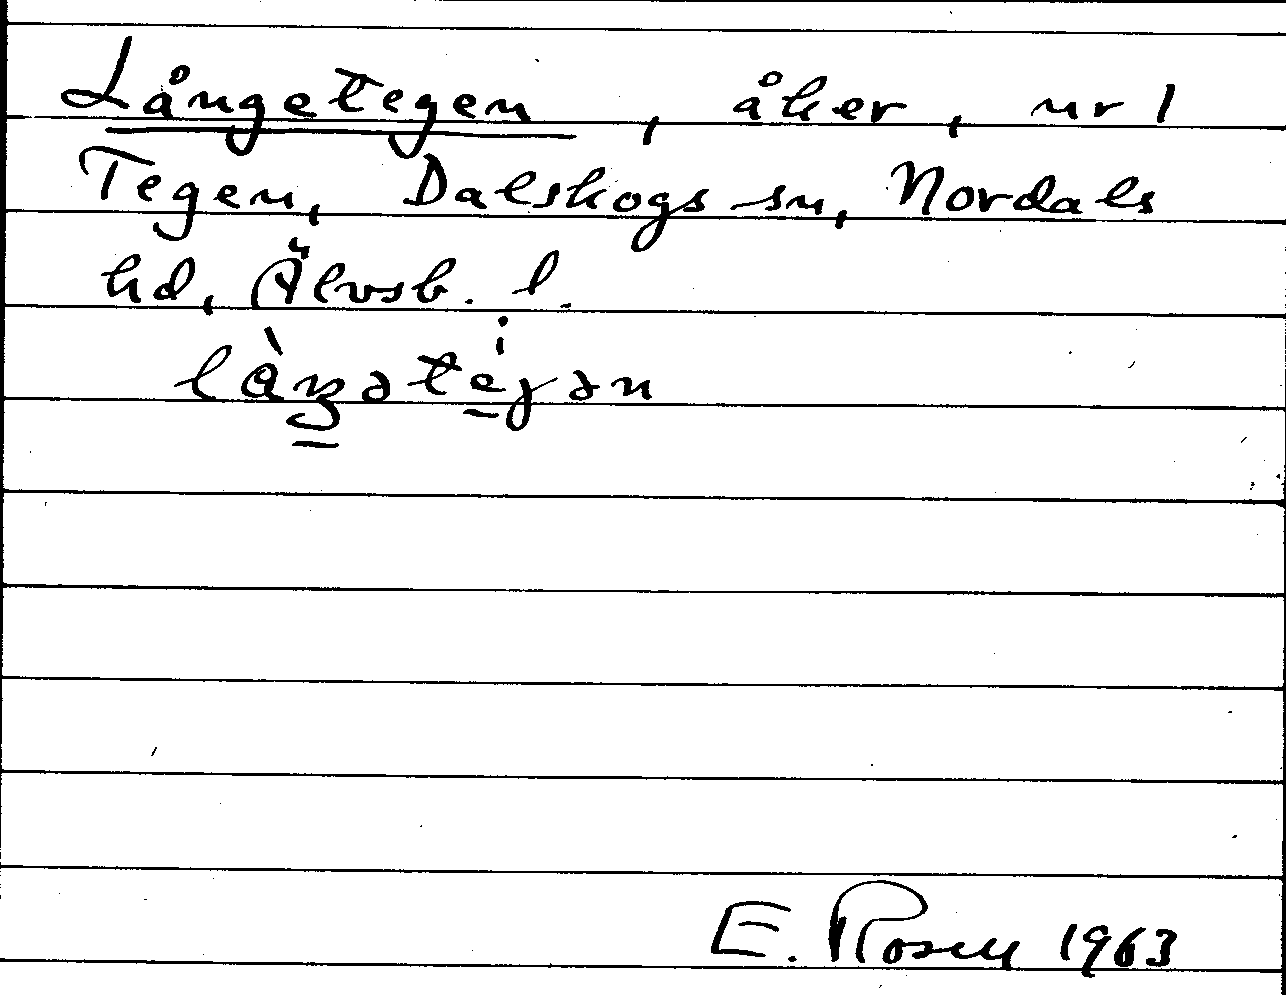 Långetegen, åker, nr 1
Tegen, Dalskogs sn, Nordals
hd, Älvsb. l.
E. Rosell 1963